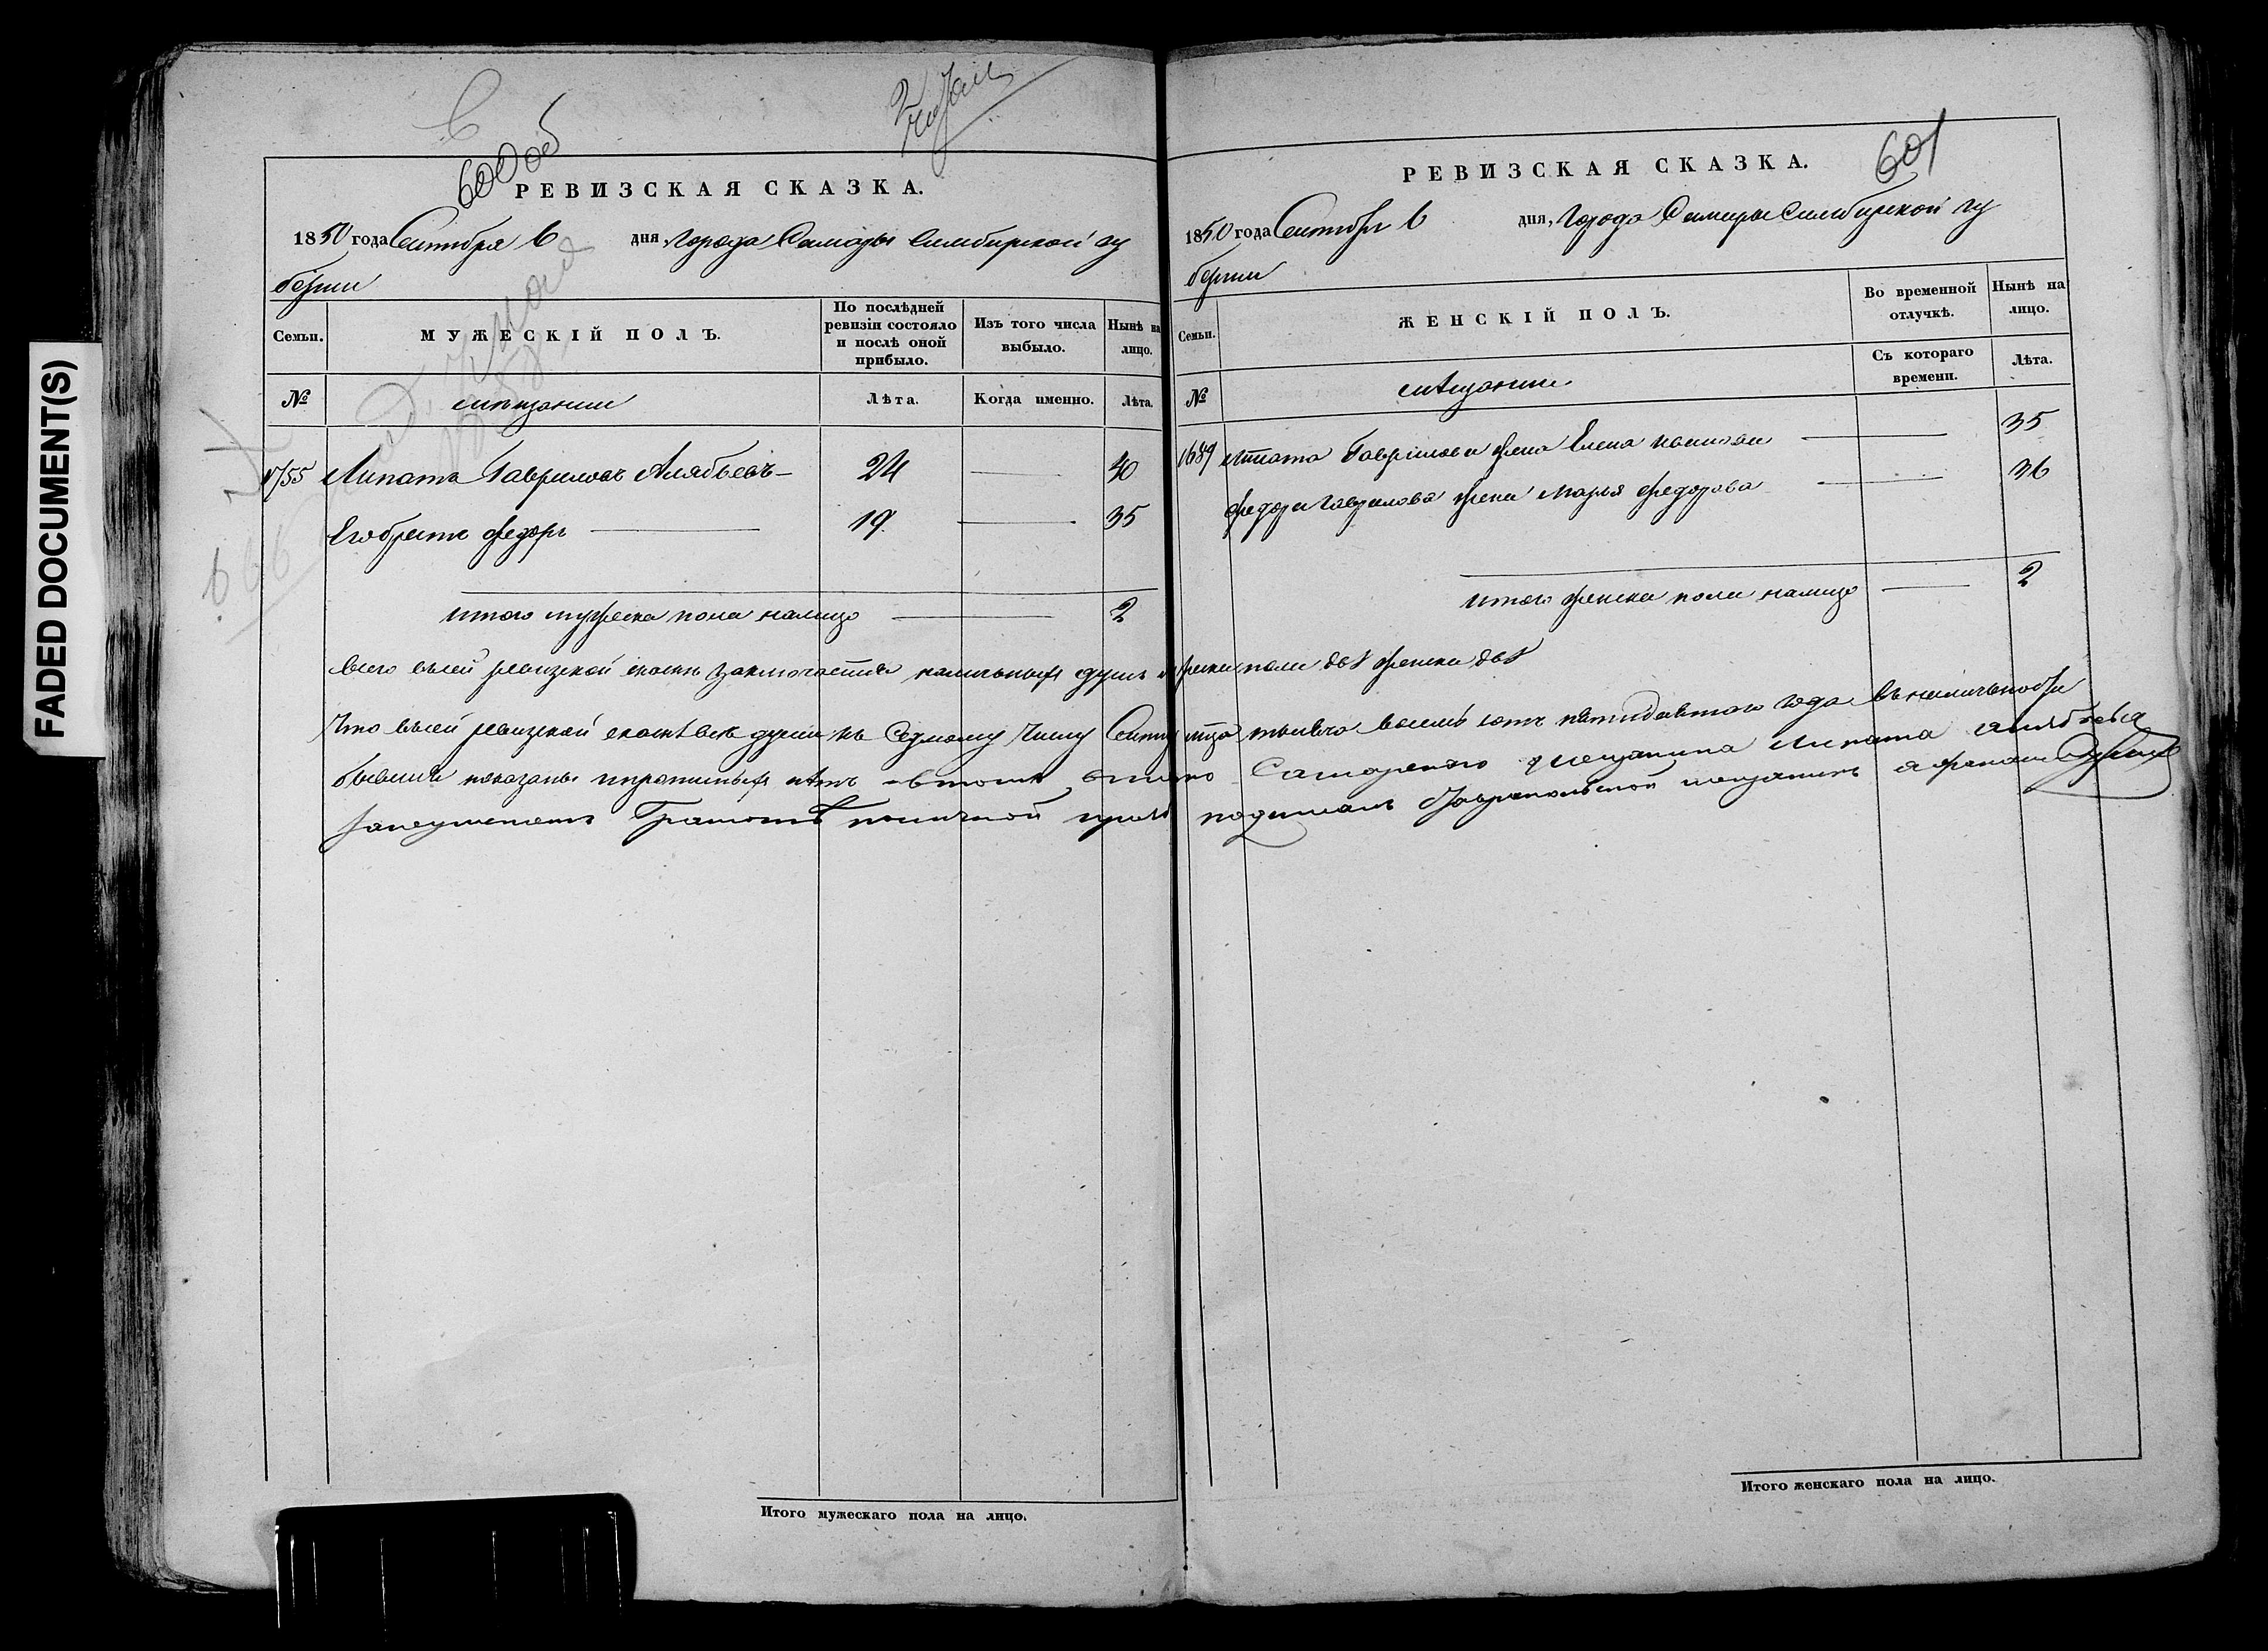 FADED DOCUMENT(S)
600 об
РЕВИЗСКАЯ СКАЗКА.
1850 года Сентября 6 дня, Города Самары Симбирской гу
бернии
Семьи.
МУЖЕСКІЙ ПОЛЪ.
По послѣдней ревизіи состояло и послѣ оной прибыло.
Изъ того числа выбыло.
Нынѣ на лицо.
№
мещании
Лѣта.
Когда именно.
Лѣта.
1755 Липатъ Гавриловъ Алябьевъ 24 40
Егобратъ Федоръ 19 35
итого мужеска пола налицо 2
601
РЕВИЗСКАЯ СКАЗКА.
1850 года Сентября 6 дня, Города Самары Симбирской гу
бернии
Семьи.
ЖЕНСКІЙ ПОЛЪ.
Во временной отлучкѣ.
Нынѣ на лицо.
№
мѣщании
Съ котораго времени.
Лѣта.
1689 Липата Гаврилова жена Елена Иванова 35
Федора Гаврилова жена Марья Федорова 36
итого женска пола налицо 2
всего всей ревизской скаски заключается наличныхъ душъ мужска пола двѣ женска двѣ
Что всей ревизской скаскѣ всѣ души къ Седмому числу Сентября тысяча восемь сотъ пятидесятого года въ наличности
бывшия показаны ипрописныхъ нѣтъ -втомъ вместо Самарского мещанина Липата Алябьева
занеуменіемъ Грамотѣ поличной прозбѣ подписалъ Ставропольской мещанинъ
Итого мужескаго пола на лицо.
Итого женскаго пола на лицо.